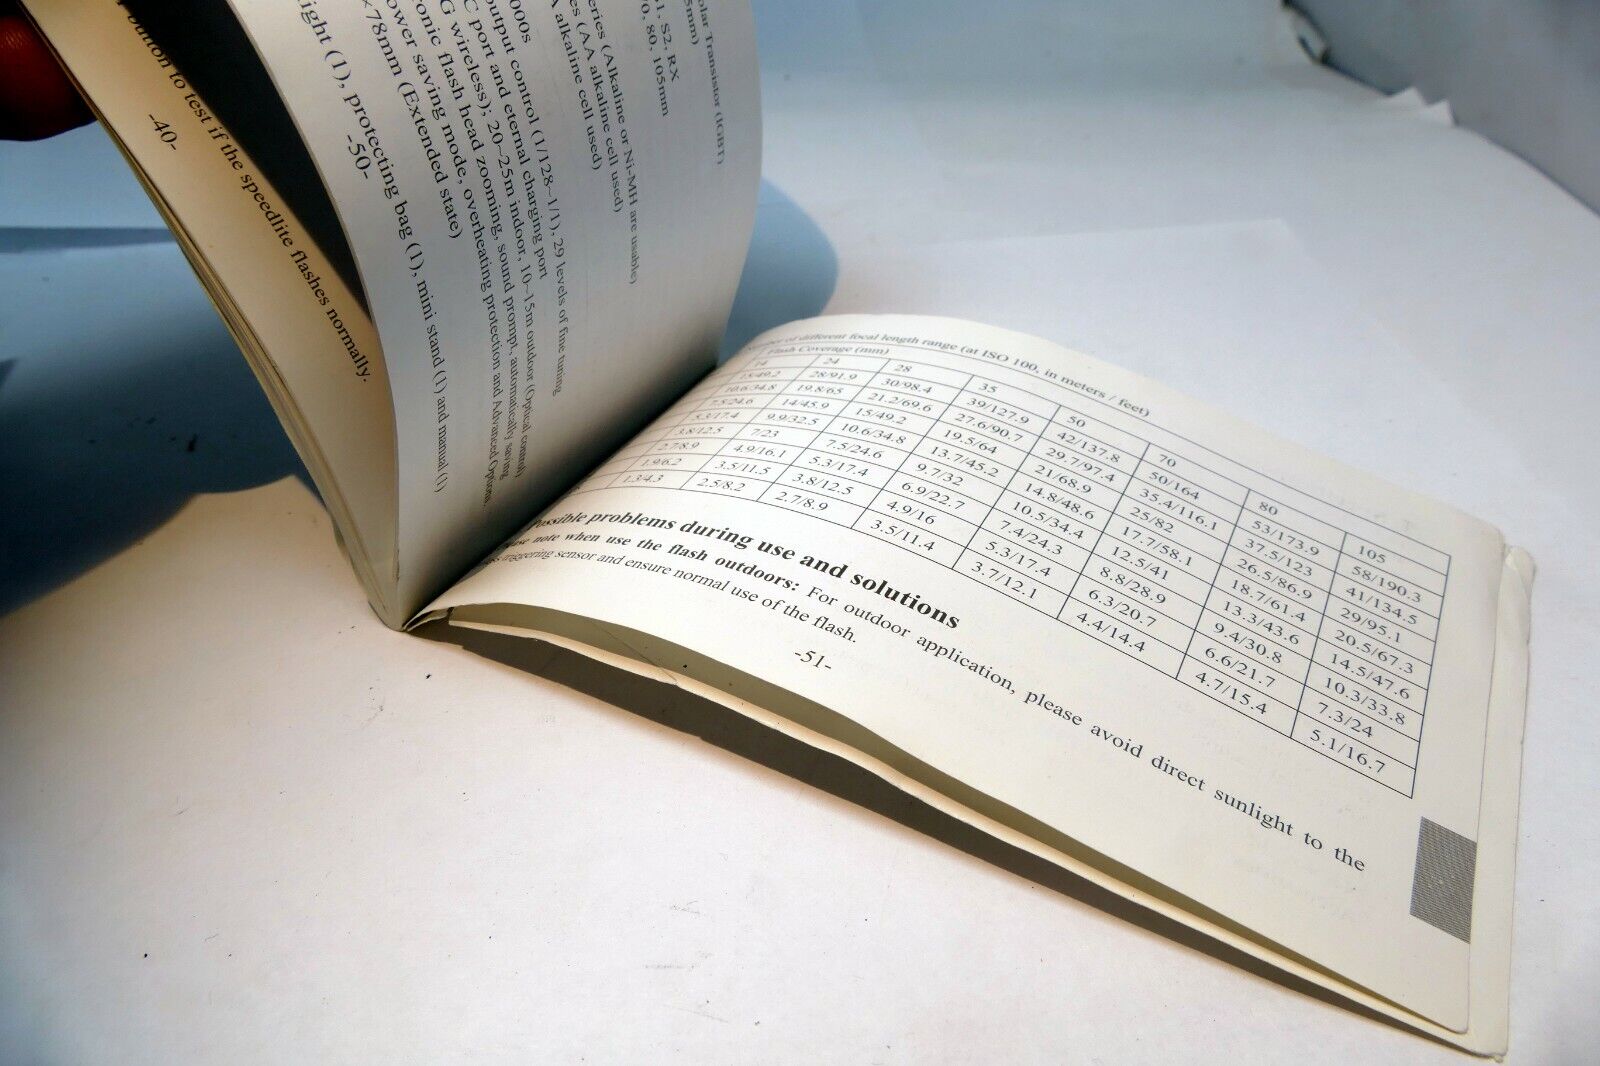 button to test if the speedlite flashes normally.
-40-
olar Transistor (IGBT)
5mm)
1, S2, RX
0, 80, 105mm
eries (Alkaline or Ni-MH are usable)
es (AA alkaline cell used)
A alkaline cell used)
000s
output control (1/128~1/1), 29 levels of fine tuning
C port and eternal charging port
G wireless); 20~25m indoor, 10~15m outdoor (Optical control)
ronic flash head zooming, sound prompt, automatically saving
ower saving mode, overheating protection and Advanced Options.
×78mm (Extended state)
ight (1), protecting bag (1), mini stand (1) and manual (1)
-50-
of different focal length range (at ISO 100, in meters / feet)
Flash Coverage (mm)
14 24 28 35 50 70 80 105
15/49.2 28/91.9 30/98.4 39/127.9 42/137.8 50/164 53/173.9 58/190.3
10.6/34.8 19.8/65 21.2/69.6 27.6/90.7 29.7/97.4 35.4/116.1 37.5/123 41/134.5
7.5/24.6 14/45.9 15/49.2 19.5/64 21/68.9 25/82 26.5/86.9 29/95.1
5.3/17.4 9.9/32.5 10.6/34.8 13.7/45.2 14.8/48.6 17.7/58.1 18.7/61.4 20.5/67.3
3.8/12.5 7/23 7.5/24.6 9.7/32 10.5/34.4 12.5/41 13.3/43.6 14.5/47.6
2.7/8.9 4.9/16.1 5.3/17.4 6.9/22.7 7.4/24.3 8.8/28.9 9.4/30.8 10.3/33.8
1.9/6.2 3.5/11.5 3.8/12.5 4.9/16 5.3/17.4 6.3/20.7 6.6/21.7 7.3/24
1.3/4.3 2.5/8.2 2.7/8.9 3.5/11.4 3.7/12.1 4.4/14.4 4.7/15.4 5.1/16.7
Possible problems during use and solutions
note when use the flash outdoors: For outdoor application, please avoid direct sunlight to the
triggering sensor and ensure normal use of the flash.
-51-